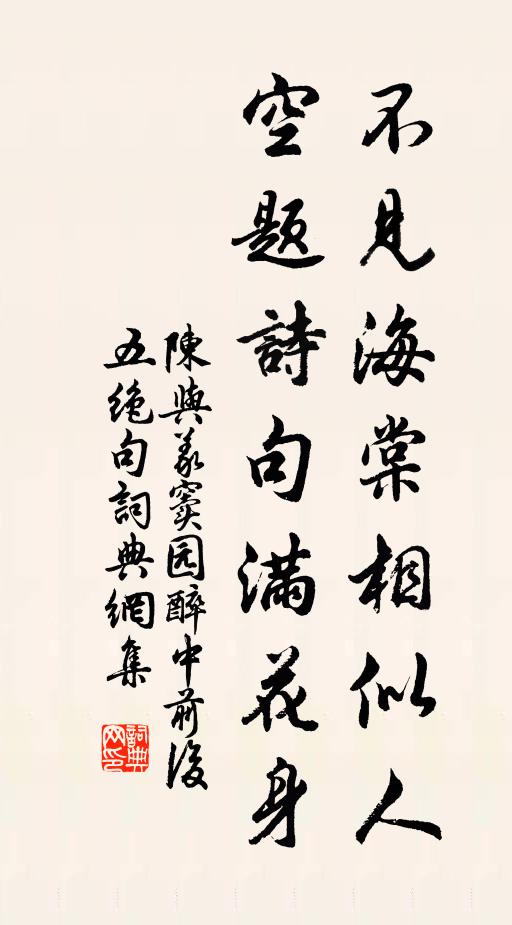 不見海棠相似人
空題詩句滿花身
陳與義窦园醉中前後
五絕句詞典網集
詞典網印